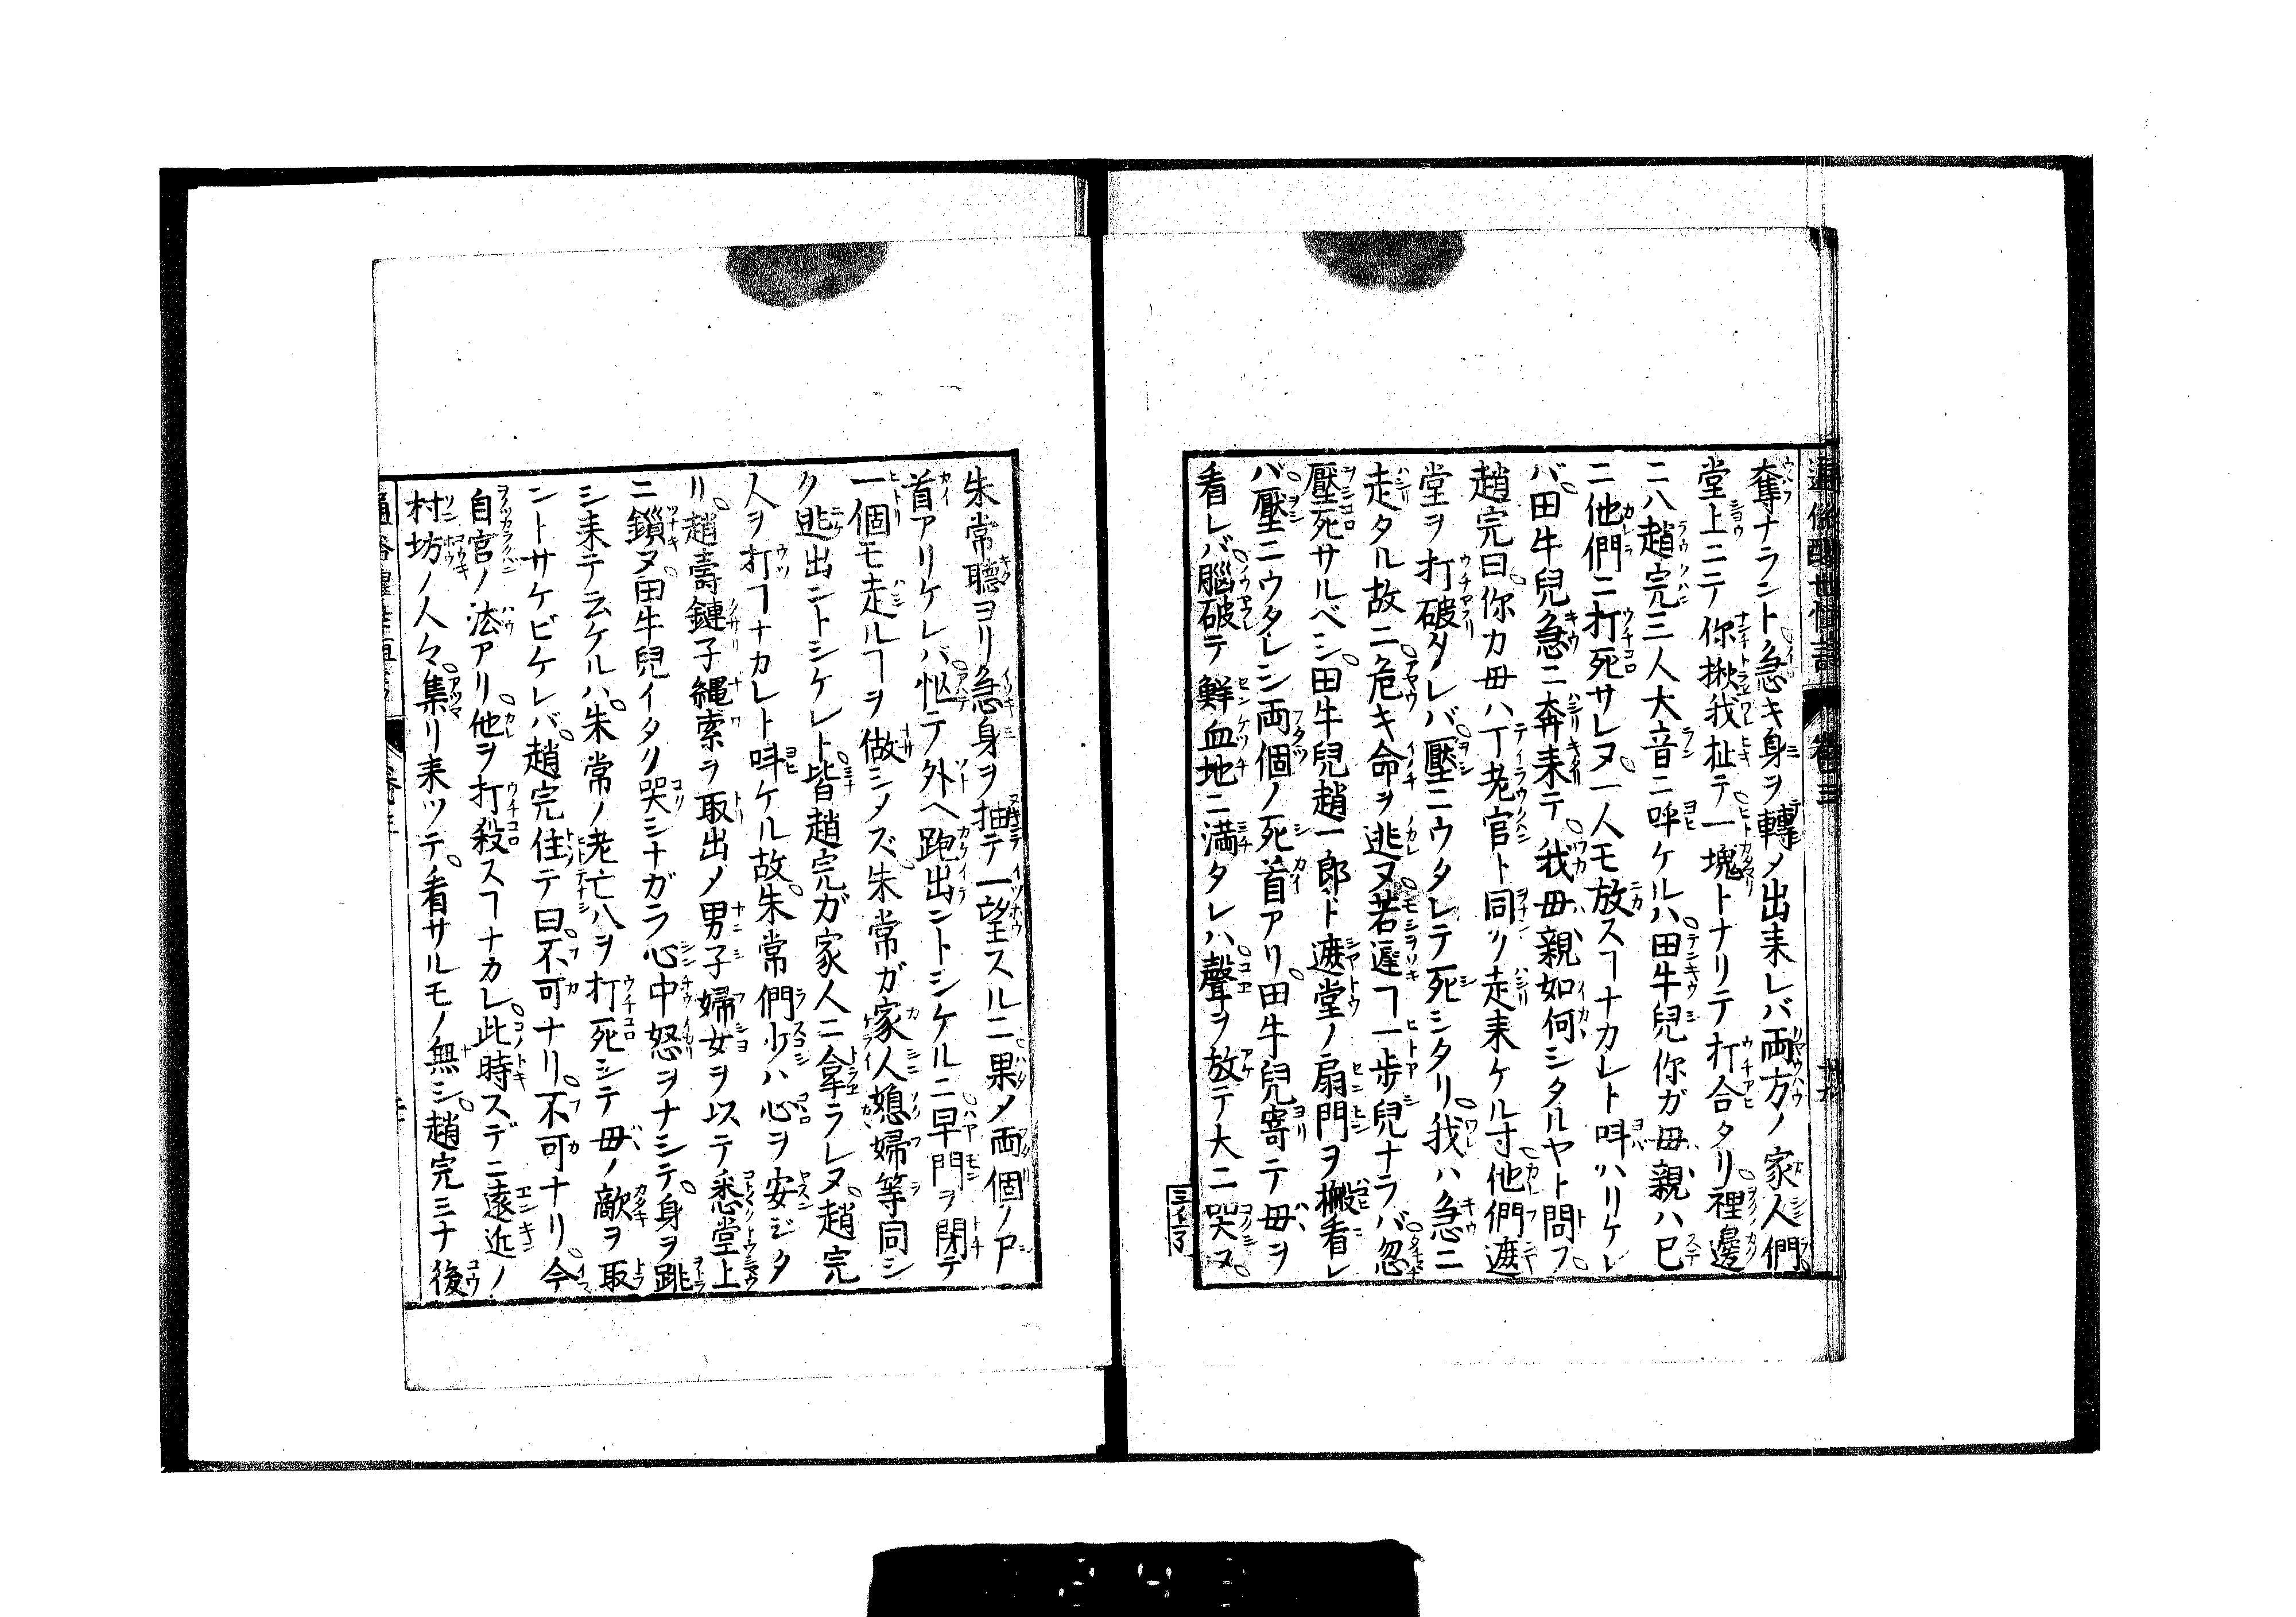 通俗醒世恒言 卷三 十九
奪ナラント急キ身ヲ轉メ出来レバ両方ノ家人們
堂上ニテ你揪我扯テ一塊トナリテ打合タリ裡邊
ニハ趙完三人大音ニ呼ケルハ田牛兒你ガ母親ハ已
ニ他們ニ打死サレヌ一人モ放スヿナカレト呌ハリケレ
バ田牛兒急ニ奔来テ我母親如何シタルヤト問フ
趙完曰你カ母ハ丁老官ト同ク走来ケル寸他們遮
堂ヲ打破タレバ壓ニウタレテ死シタリ我ハ急ニ
走タル故ニ危キ命ヲ逃ヌ若遲ヿ一歩兒ナラバ忽
壓死サルベシ田牛兒趙一郎ト遮堂ノ扇門ヲ搬看レ
バ壓ニウタレシ両個ノ死首アリ田牛兒寄テ母ヲ
看レバ腦破テ鮮血地ニ満タレハ聲ヲ放テ大ニ哭ヌ
朱常聽ヨリ急身ヲ抽テ一望スルニ果ノ両個ノ尸
首アリケレバ恇テ外ヘ跑出ントシケルニ早門ヲ閉テ
一個モ走ルヿヲ做シメズ朱常ガ家人媳婦等同シ
ク逃出ントシケレト皆趙完ガ家人ニ拿ラレヌ趙完
人ヲ打ヿナカレト呌ケル故朱常們少ハ心ヲ安ジタ
リ趙壽鏈子縄索ヲ取出ノ男子婦女ヲ以テ悉堂上
ニ鎖ヌ田牛兒イタク哭シナガラ心中怒ヲナシテ身ヲ跳
シ来テ云ケルハ朱常ノ老亡八ヲ打死シテ母ノ敵ヲ取
ントサケビケレバ趙完住テ曰不可ナリ不可ナリ今
自官ノ法アリ他ヲ打殺スヿナカレ此時スデニ遠近ノ
村坊ノ人々集リ来ツテ看サルモノ無シ趙完ミナ後